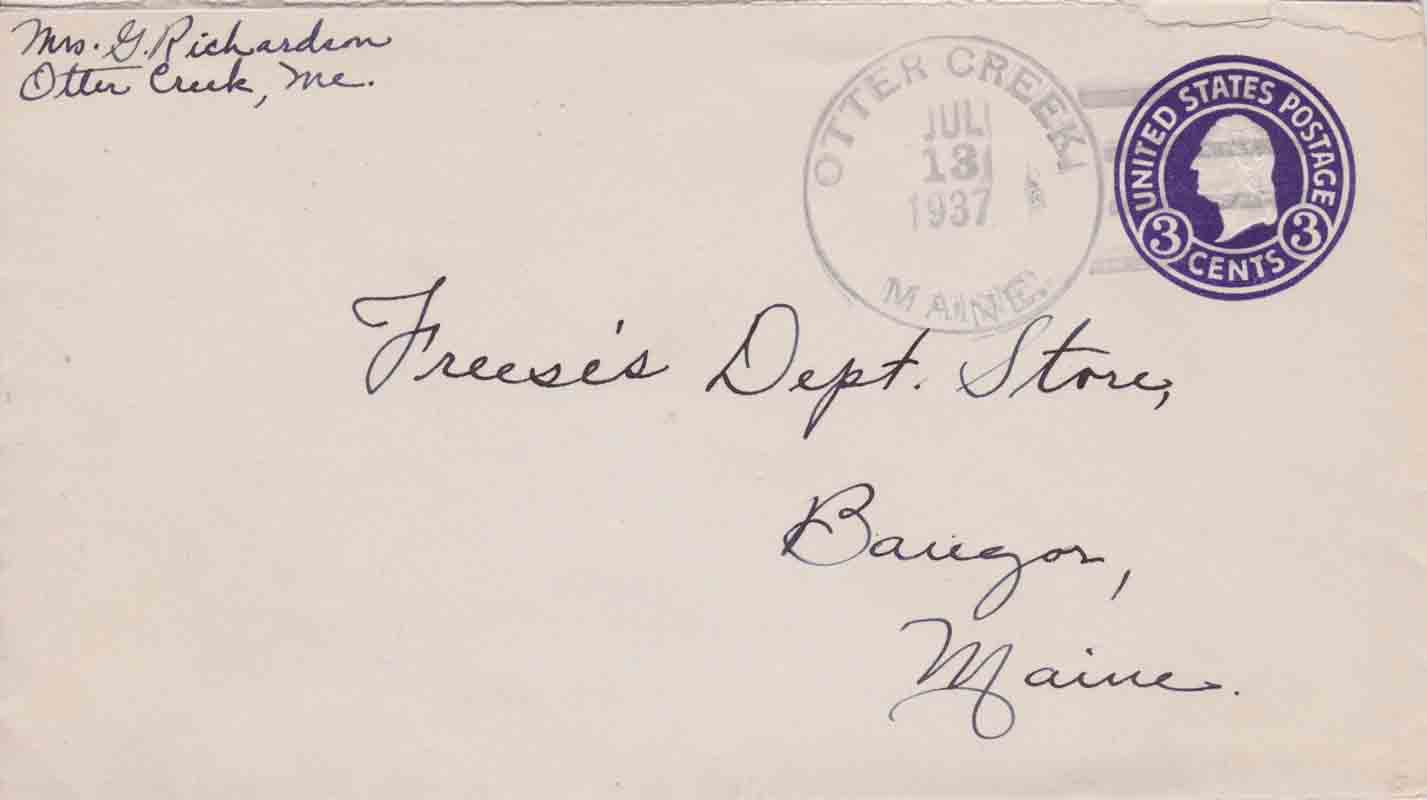 Mrs. G. Richardson
Otter Creek, Me.
OTTER CREEK
JUL
13
1937
MAINE.
UNITED STATES POSTAGE
3 CENTS 3
Freese's Dept. Store,
Bangor,
Maine.